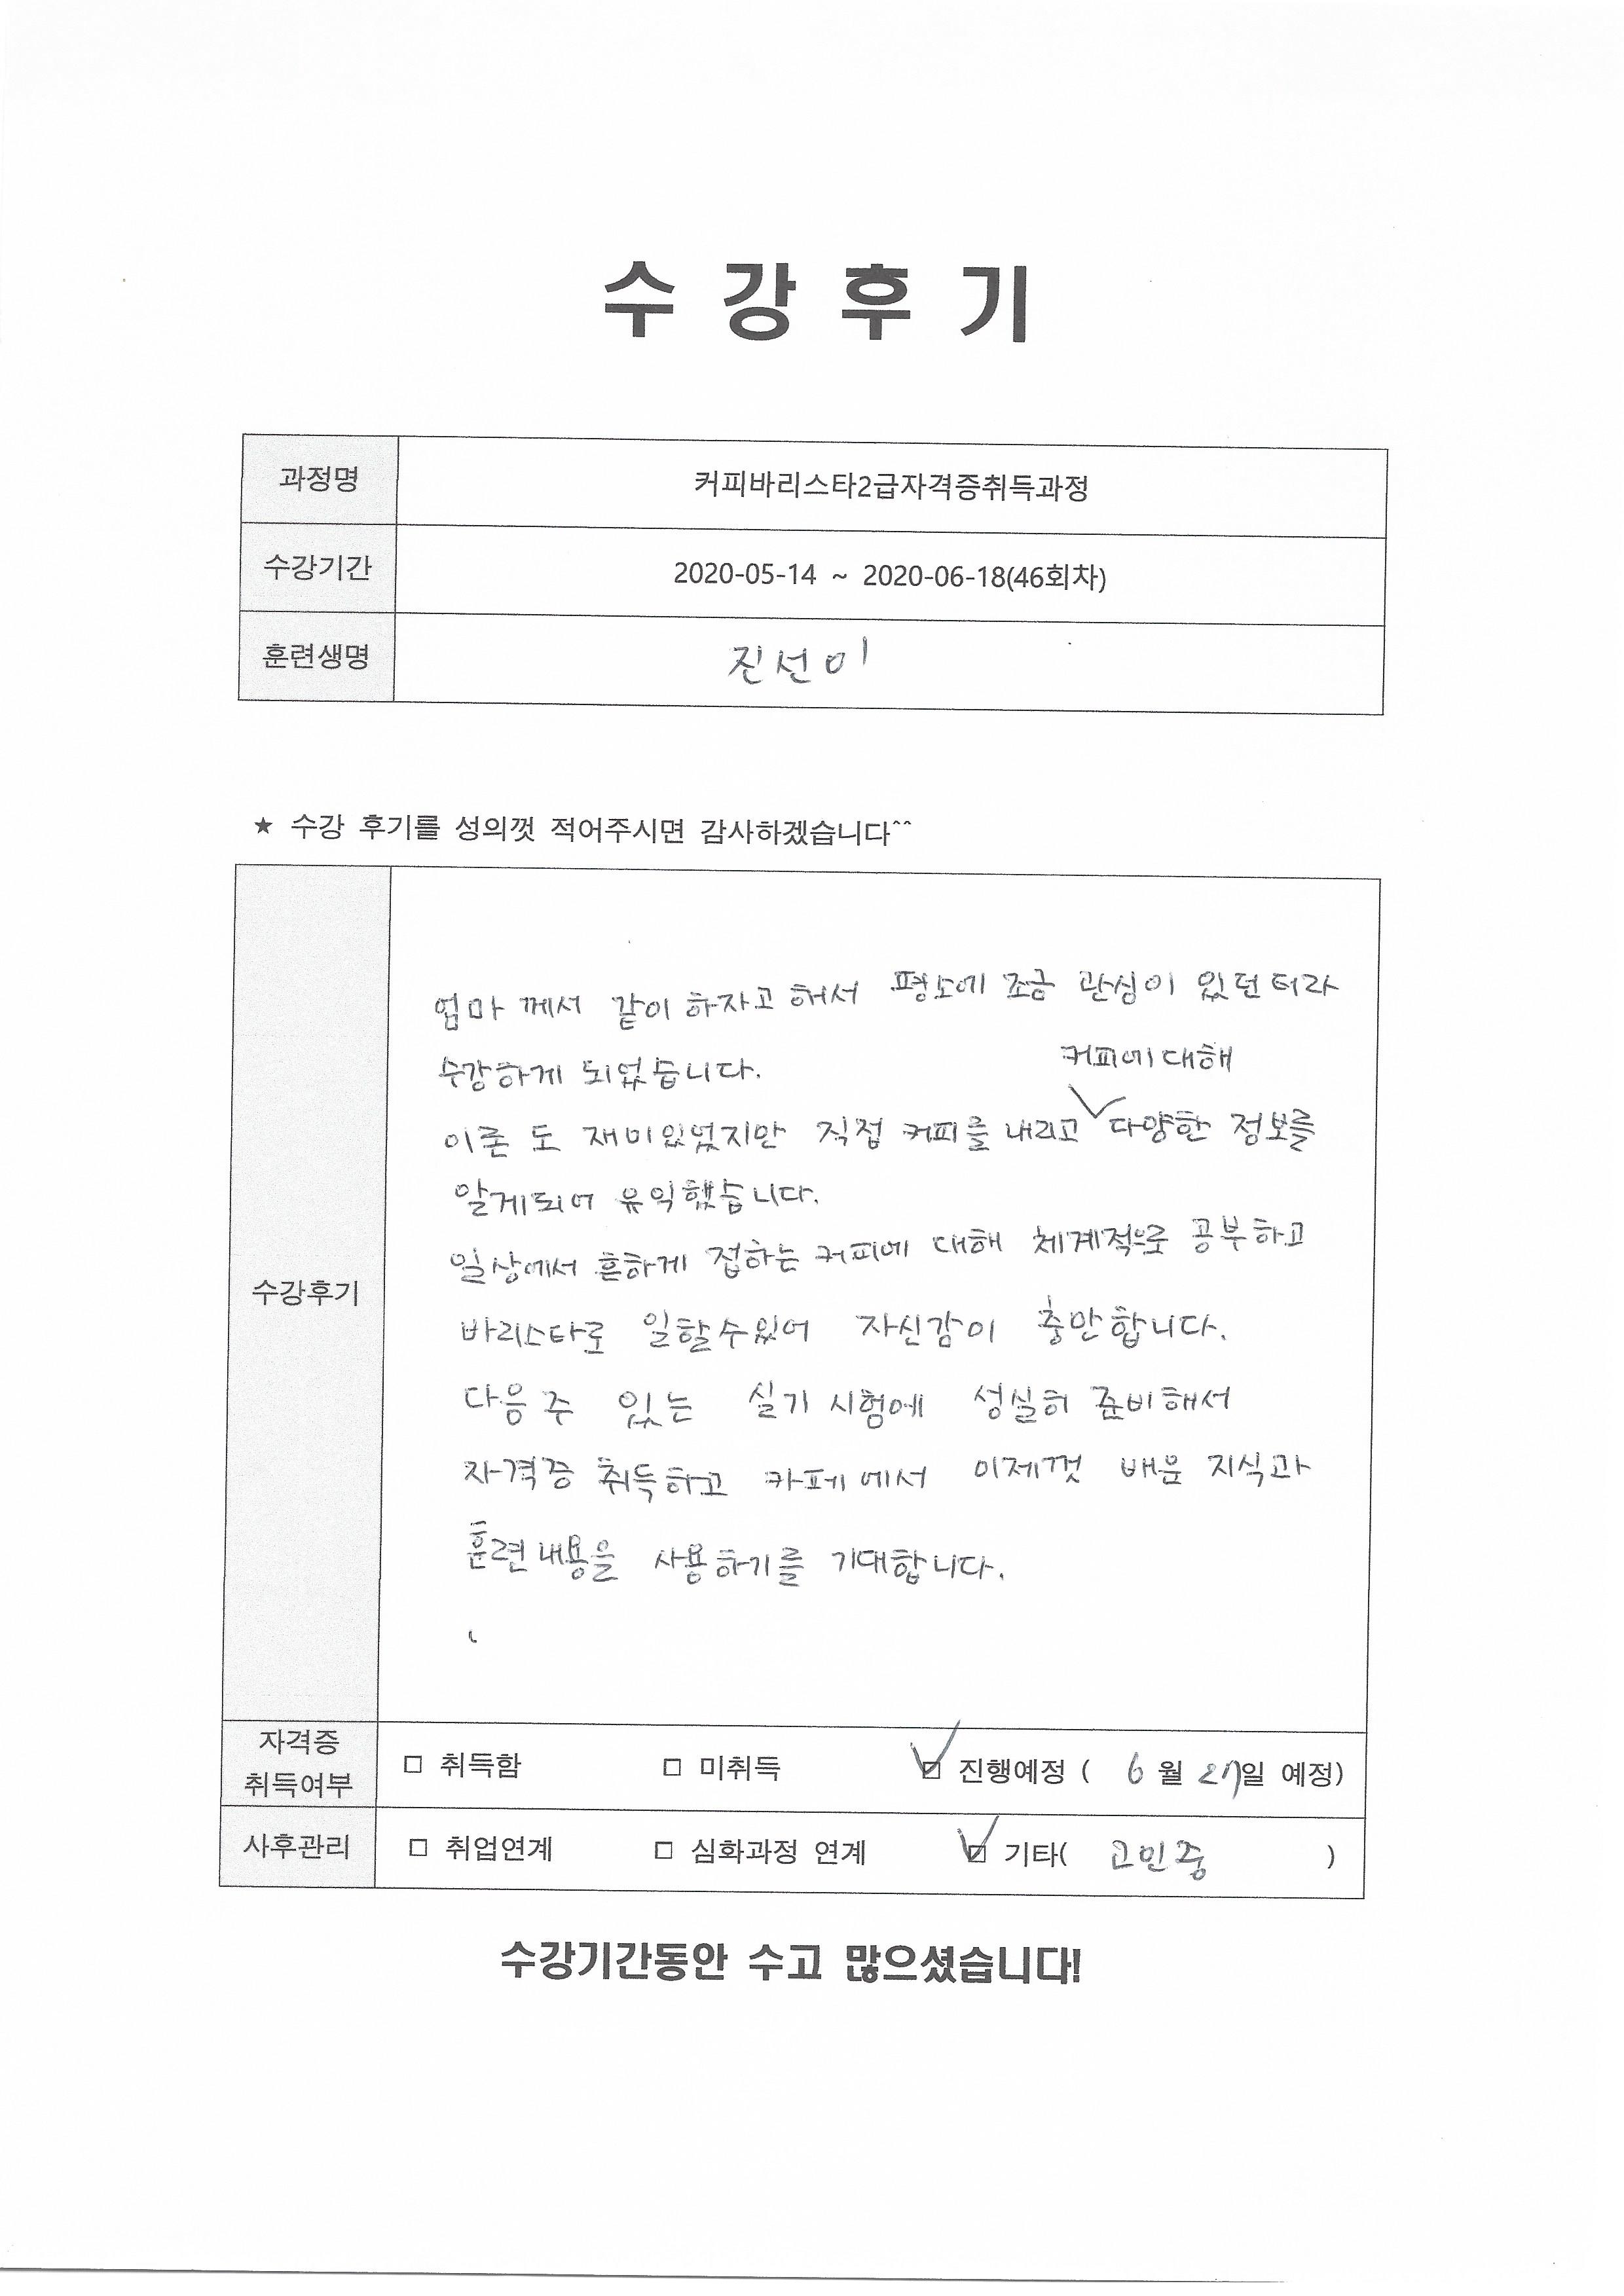 수 강 후 기
과정명 커피바리스타2급자격증취득과정
수강기간 2020-05-14 ~ 2020-06-18(46회차)
훈련생명 진선이
★ 수강 후기를 성의껏 적어주시면 감사하겠습니다^^
엄마 께서 같이 하자고 해서 평소에 조금 관심이 있던 터라
수강하게 되었습니다.
커피에 대해
이론 도 재미있었지만 직접 커피를 내리고 다양한 정보를
알게되어 유익했습니다.
일상에서 흔하게 접하는 커피에 대해 체계적으로 공부하고
수강후기
바리스타로 일할수있어 자신감이 충만합니다.
다음주 있는 실기 시험에 성실히 준비해서
자격증 취득하고 카페에서 이제껏 배운 지식과
훈련내용을 사용하기를 기대합니다.
자격증
취득여부
□ 취득함 □ 미취득 ☑ 진행예정 ( 6 월 27일 예정)
사후관리 □ 취업연계 □ 심화과정 연계 ☑ 기타( 고민중 )
수강기간동안 수고 많으셨습니다!